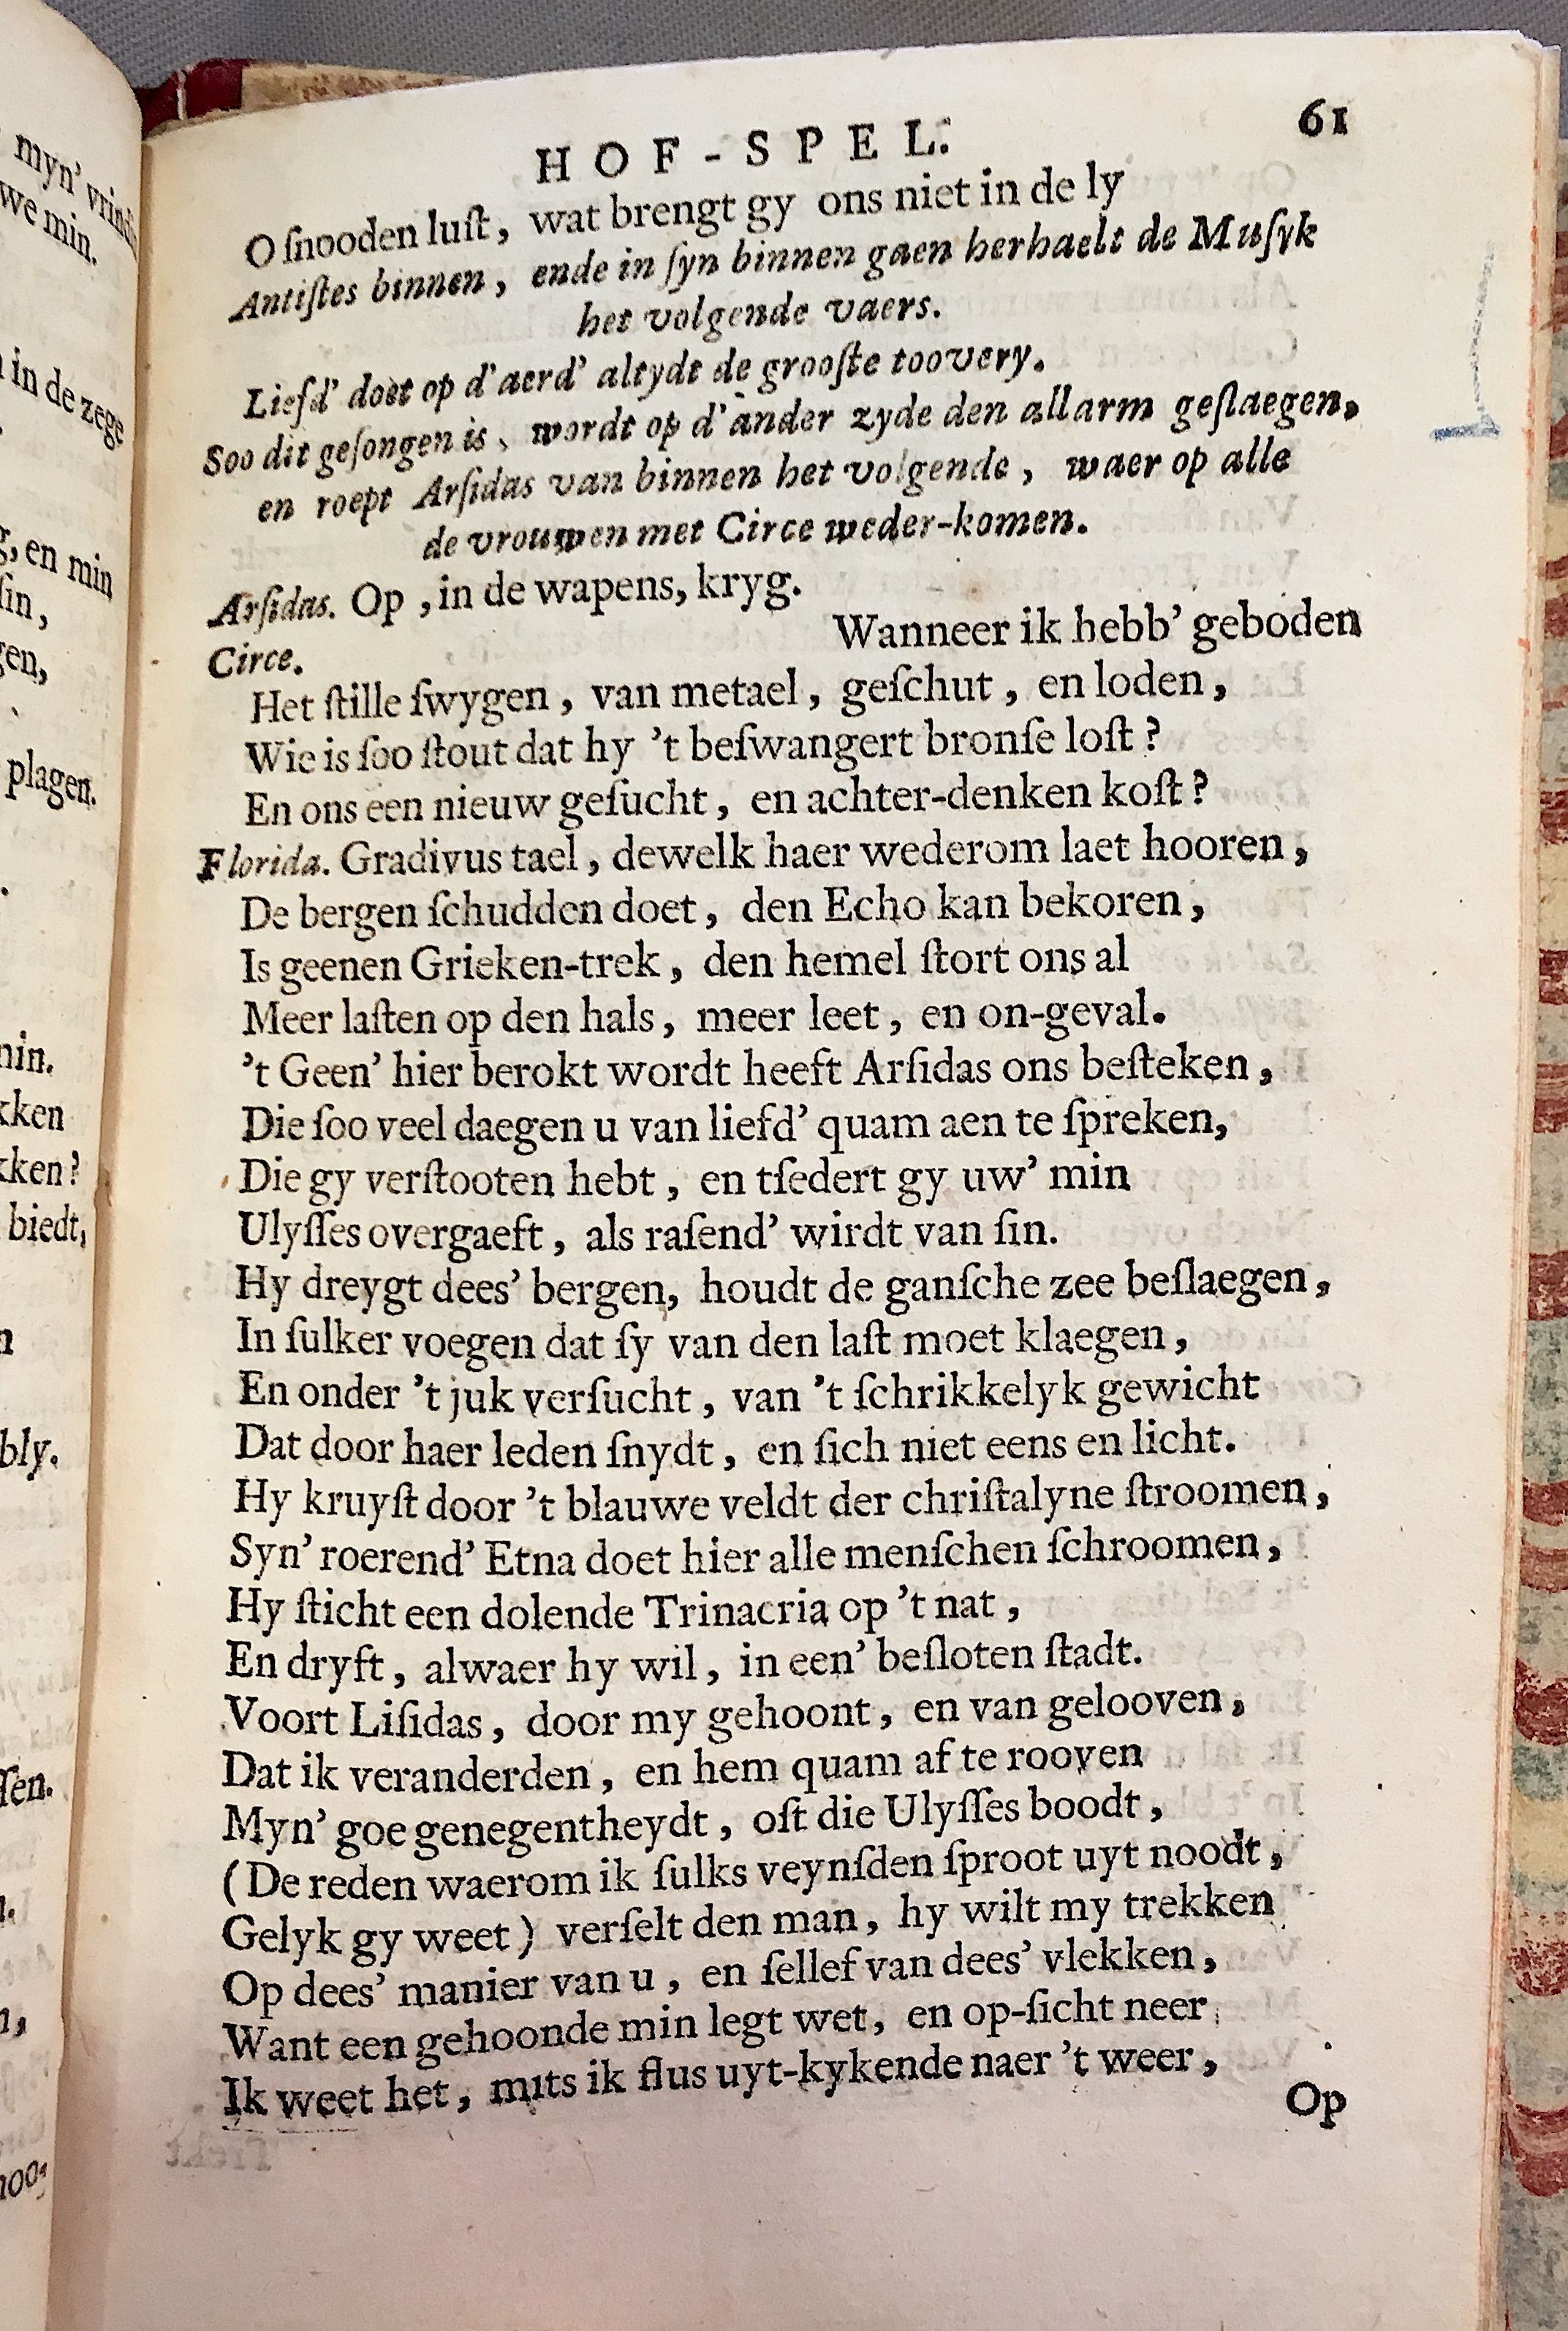 HOF-SPEL. 61
O ſnooden luſt, wat brengt gy ons niet in de ly
Antiſtes binnen, ende in ſyn binnen gaen herhaelt de Muſyk
het volgende vaers.
Liefd' doet op d'aerd' altydt de grooſte toovery.
Soo dit geſongen is, wordt op d'ander zyde den allarm geſlaegen,
en roept Arſidas van binnen het volgende, waer op alle
de vrouwen met Circe weder-komen.
Arſidas. Op, in de wapens, kryg.
Circe. Wanneer ik hebb' geboden
Het ſtille ſwygen, van metael, geſchut, en loden,
Wie is ſoo ſtout dat hy 't beſwangert bronſe loſt?
En ons een nieuw geſucht, en achter-denken koſt?
Florida. Gradivus tael, dewelk haer wederom laet hooren,
De bergen ſchudden doet, den Echo kan bekoren,
Is geenen Grieken-trek, den hemel ſtort ons al
Meer laſten op den hals, meer leet, en on-geval.
't Geen' hier berokt wordt heeft Arſidas ons beſteken,
Die ſoo veel daegen u van liefd' quam aen te ſpreken,
Die gy verſtooten hebt, en tſedert gy uw' min
Ulyſſes overgaeft, als raſend' wirdt van ſin.
Hy dreygt dees' bergen, houdt de ganſche zee beſlaegen,
In ſulker voegen dat ſy van den laſt moet klaegen,
En onder 't juk verſucht, van 't ſchrikkelyk gewicht
Dat door haer leden ſnydt, en ſich niet eens en licht.
Hy kruyſt door 't blauwe veldt der chriſtalyne ſtroomen,
Syn' roerend' Etna doet hier alle menſchen ſchroomen,
Hy ſticht een dolende Trinacria op 't nat,
En dryft, alwaer hy wil, in een' beſloten ſtadt.
Voort Liſidas, door my gehoont, en van gelooven,
Dat ik veranderden, en hem quam af te rooven
Myn' goe genegentheydt, oſt die Ulyſſes boodt,
(De reden waerom ik ſulks veynſden ſproot uyt noodt,
Gelyk gy weet) verſelt den man, hy wilt my trekken
Op dees' manier van u, en ſellef van dees' vlekken,
Want een gehoonde min legt wet, en op-ſicht neer,
Ik weet het, mits ik flus uyt-kykende naer 't weer,
Op